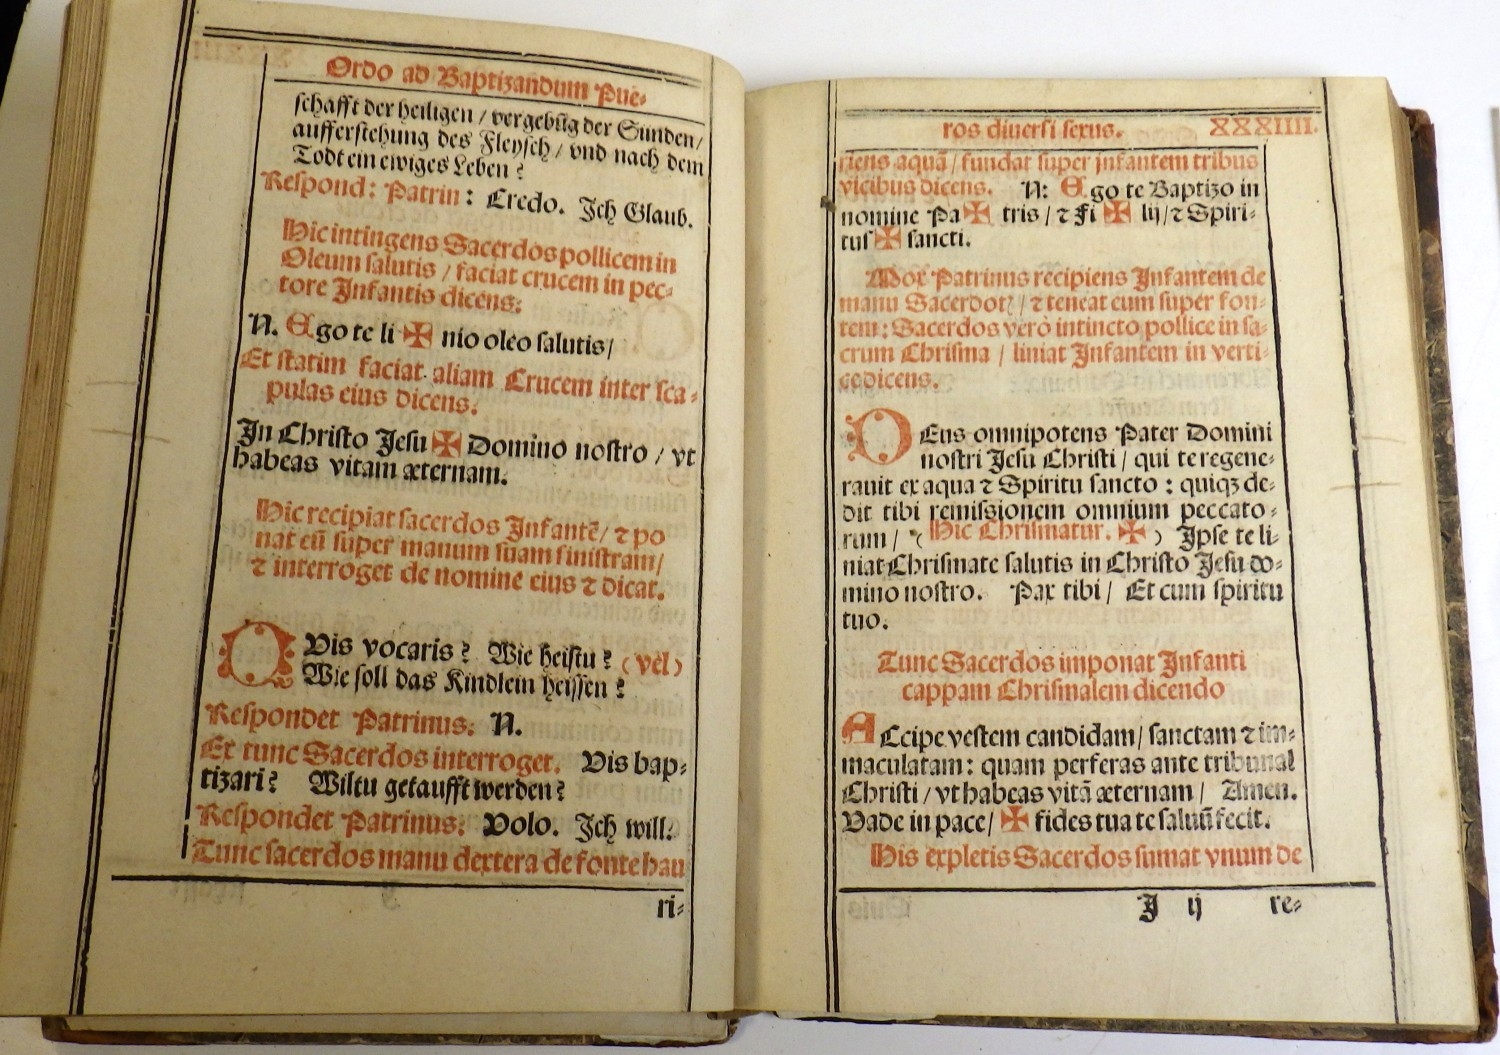 Ordo ad Baptizandum Pue-
schafft der heiligen / vergebũg der Sünden /
aufferstehung des Fleysch / vnd nach dem
Todt ein ewiges Leben ?
Respond: Patrin: Credo. Ich Glaub.
Hic intingens Sacerdos pollicem in
Oleum salutis / faciat crucem in pec-
tore Infantis dicens:
N. Ego te li ✠ nio oleo salutis /
Et statim faciat aliam Crucem inter sca-
pulas eius dicens.
In Christo Jesu ✠ Domino nostro / vt
habeas vitam æternam.
Hic recipiat sacerdos Infantẽ / ⁊ po
nat eũ super manum suam sinistram /
⁊ interroget de nomine eius ⁊ dicat.
QVis vocaris ? Wie heistu ? (vel)
Wie soll das Kindlein heissen ?
Respondet Patrinus: N.
Et tunc Sacerdos interroget. Vis bap-
tizari ? Wiltu getaufft werden ?
Respondet Patrinus: Volo. Ich will.
Tunc sacerdos manu dextera de fonte hau
ri-
ros diuersi sexus. XXXIIII.
riens aquã / fundat super infantem tribus
vicibus dicens. N: Ego te Baptizo in
nomine Pa ✠ tris / ⁊ Fi ✠ lij / ⁊ Spiri-
tus ✠ sancti.
Mox Patrinus recipiens Infantem de
manu Sacerdot / ⁊ teneat eum super fon-
tem: Sacerdos verò intincto pollice in sa-
crum Chrisma / liniat Infantem in verti-
ce dicens.
DEus omnipotens Pater Domini
nostri Jesu Christi / qui te regene-
rauit ex aqua ⁊ Spiritu sancto : quiqȝ de-
dit tibi remissionem omnium peccato-
rum / (Hic Chrismatur. ✠ ) Ipse te li-
niat Chrismate salutis in Christo Jesu do-
mino nostro. Pax tibi / Et cum spiritu
tuo.
Tunc Sacerdos imponat Infanti
cappam Chrismalem dicendo
ACcipe vestem candidam / sanctam ⁊ im-
maculatam : quam perferas ante tribunal
Christi / vt habeas vitã æternam / Amen.
Vade in pace / ✠ fides tua te saluũ fecit.
His expletis Sacerdos sumat vnum de
J ij re-